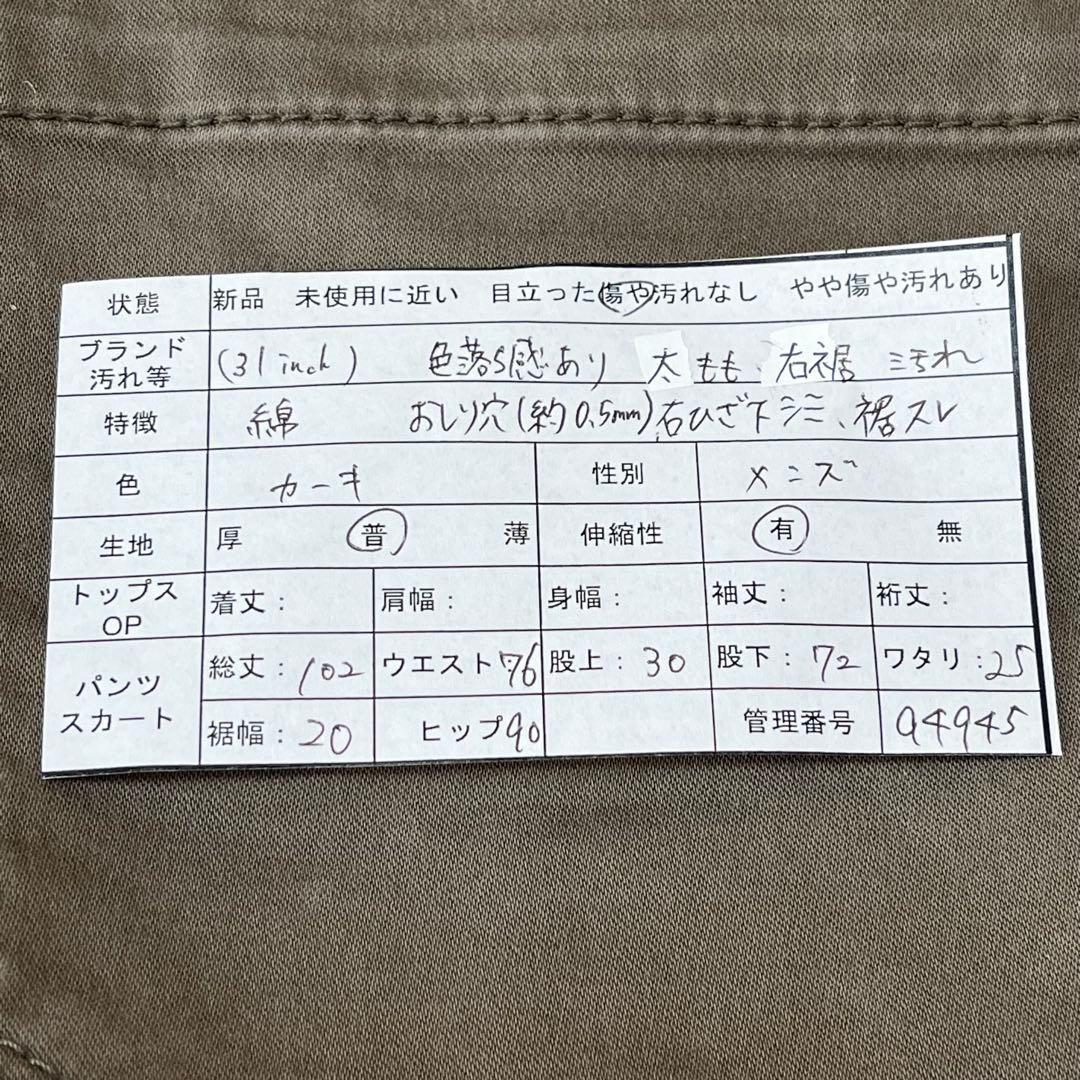 状態 新品 未使用に近い 目立った傷や汚れなし やや傷や汚れあり
ブランド 汚れ等 (31inch) 色落ち感あり 太もも、右裾 汚れ
特徴 綿 おしり穴(約0.5mm)右ひざ下シミ、裾スレ
色 カーキ 性別 メンズ
生地 厚 普 薄 伸縮性 有 無
トップス OP 着丈: 肩幅: 身幅: 袖丈: 裄丈:
パンツ スカート 総丈:102 ウエスト:76 股上:30 股下:72 ワタリ:25
裾幅:20 ヒップ90 管理番号 94945